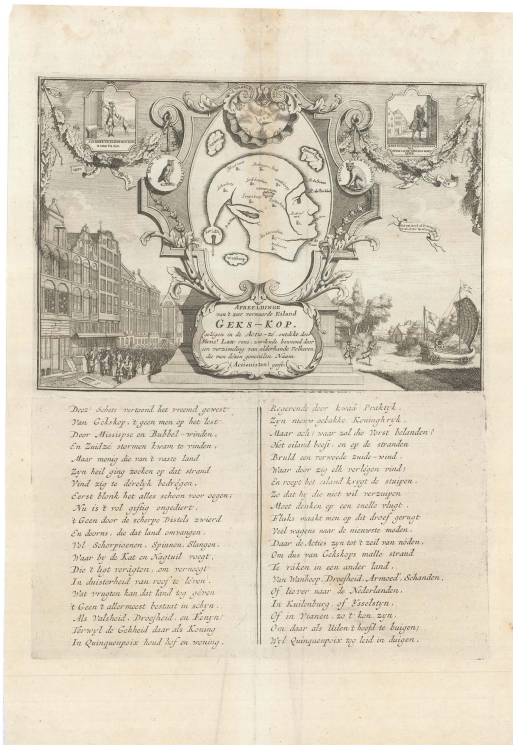 AFBEELDINGE
van't zeer vermaarde Eiland
GEKS-KOP.
geligen in de Actie-zé, ontdekt door
Monsr. Law-rens, werdende bewoond door
een verzameling van alderhande Volkeren
die men deezen generalen Naam
(Actionisten) geeft.
Deez' Schets vertoond het vreemd gewest
Van Gekskop, 't geen men op het lest
Door Missisipse en Bubbel-winden,
En Zuidzé stormen kwam te vinden,
Maar menig die van't vaste land
Zyn heil ging zoeken op dat strand
Vind zig te déerelyk bedrógen.
Eerst blonk het alles schoon voor oogen;
Nu is't vol giftig ongediert,
't Geen door de scherpe Distels zwierd
En doorns, die dat land omvangen,
Vol Schorpioenen, Spinnen, Slangen,
Waar by de Kat en Nagtuil voegt,
Die 't ligt veragten, om vernoegt
In duisterheid van roof te léven.
Wat vrugten kan dat land tog géven
't Geen 't allermeest bestaat in schyn,
Als Valsheid, Droefheid, en Fenyn?
Terwyl de Gekheid daar als Koning
In Quinquenpoix houd hof en woning.
Regerende door kwaê Praktyk,
Zyn nieuw gebakke Koningkryk.
Maar ach! waar zal die Vorst belanden?
Hét eiland beeft, en op de stranden
Bruld een verwoede zuide-wind.
Waar door zig elk verlégen vind;
En roept het eiland krygt de stuipen.
Zo dat hy die niet wil verzuipen
Moet denken op een snelle vlugt.
Fluks maakt men op dit droef gerugt
Veel wagens naar de nieuwste moden,
Daar de Acties zyn tot 't zeil van noden,
Om dus van Gekskops malle strand
Te ráken in een ander land,
Van Wanhoop, Droefheid, Armoed, Schanden,
Of liever naar de Nederlanden,
In Kuilenburg, of Ysselstyn,
Of in Vianen, zo't kon zyn,
Om daar als Uilen't hoofd te buigen;
Wyl Quinquenpoix tog leid in duigen.